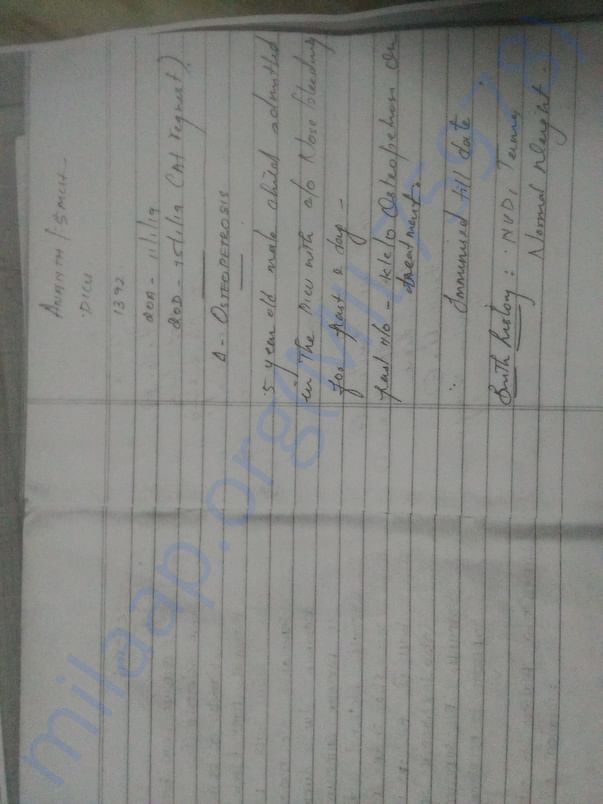 ANANTH / 5 MCH -
PICU
1392
DOA - 11/1/19
DOD - 25/1/19 (At request)
Δ - OSTEOPETROSIS
5 year old male child admitted
in the PICU with c/o Nose bleeding
for past 2 day -
past h/o - K/c/o Osteopetrosis on
treatment.
Immunised till date
Birth history: NVD, Term,
Normal Weight.
milaap.org